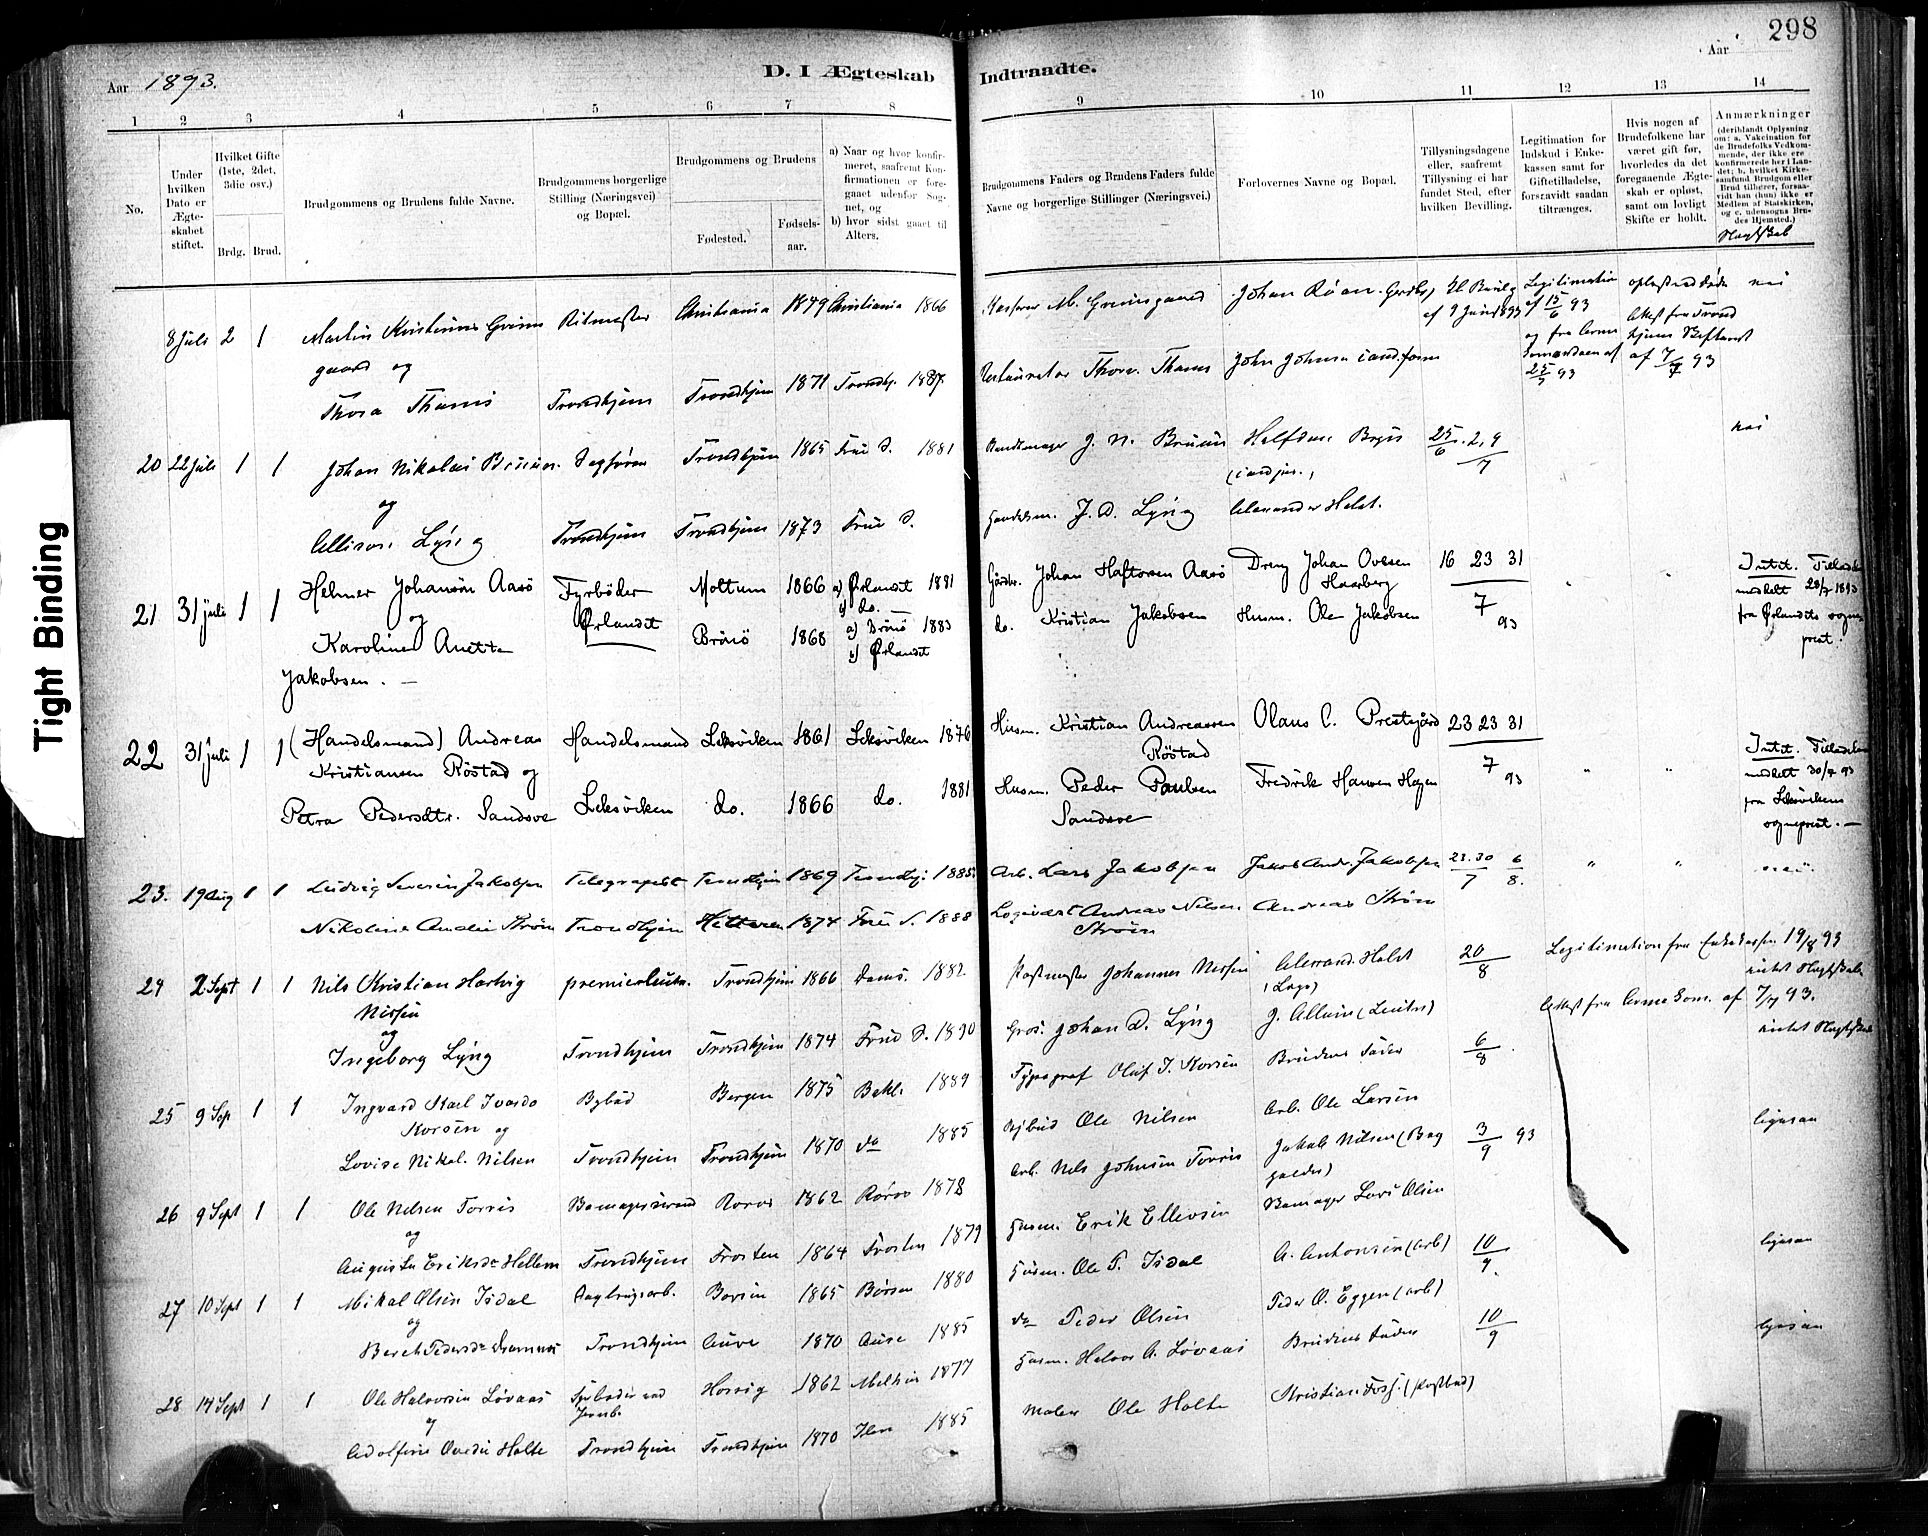 298
Aar 1893.
D. I Ægteskab Indtraadte.
Aar
1 2 3 4 5 6 7 8 9 10 11 12 13 14
No.
Under hvilken Dato er Ægteskabet stiftet.
Hvilket Gifte (1ste, 2det, 3die osv.)
Brdg. Brud.
Brudgommens og Brudens fulde Navne.
Brudgommens borgerlige Stilling (Næringsvei) og Bopæl.
Brudgommens og Brudens
Fødested.
Fødselsaar.
a) Naar og hvor konfirmeret, saafremt Konfirmationen er foregaaet udenfor Sognet, og
b) hvor sidst gaaet til Alters.
Brudgommens Faders og Brudens Faders fulde Navne og borgerlige Stillinger (Næringsvei.)
Forlovernes Navne og Bopæl.
Tillysningsdagene eller, saafremt Tillysning ei har fundet Sted, efter hvilken Bevilling.
Legitimation for Indskud i Enkekassen samt for Giftetilladelse, forsaavidt saadan tiltrænges.
Hvis nogen af Brudefolkene har været gift før, hvorledes da det foregaaende Ægteskab er opløst, samt om lovligt Skifte er holdt.
Anmærkninger
(deriblandt Oplysning om: a. Vakcination for de Brudefolks Vedkommende, der ikke ere konfirmerede her i Landet; b. hvilket Kirkesamfund Brudgom eller Brud tilhører, forsaavidt han (hun) ikke er Medlem af Statskirken, og c. udensogns Brudes Hjemsted.)
8 Juli 2 1 Martin Kristinus Grims Ritmester Christiania 1849 Christiania 1866 M. Grimsgaard Johan Roan af 9 Juni 1893 Legitimation af 15/6 93 nei
gaard og og fra
Thora Thams Trondhjem Trondhjem 1871 Trondhj. 1887. Restauratør Thorv. Thams John Johnsen 25/7 93 af 7/7 93
20 22 Juli 1 1 Johan Nikolai Bruun Sagfører Trondhjem 1865 Frue S. 1881 J. N. Bruun Halfdan Bryn 25/6. 2, 9/7 nei
og (cand jur.)
Lyng Trondhjem Trondhjem 1873 Frue S. Handelsm. J. D. Lyng Alexander Holst.
21 31 juli 1 1 Helmer Johansøn Aasø Fyrbøder Moltum 1866 a) Ørlandet 1881 Gårdbr. Johan Haftorsen Aasø Dreng Johan Ovesen 16 23 31 " " Intet. Tilladelse
og Ørlandet b) do. Haarberg 7 meddelt 28/7 1893
Karoline Anette Brönö 1868 a) Brönö 1883 do. Kristian Jakobsen Husm. Ole Jakobsen 93 fra Ørlandets sogne
Jakobsen. — b) Ørlandet prest.
22 31 juli 1 1 (Handelsmand) Andreas Handelsmand Leksviken 1861 Leksviken 1876 Husm. Kristian Andreassen Olaus C. Prestgård 23 23 31
Kristiansen Röstad og Röstad 7 93 " " Intet. Tilladelse
Petra Pedersdtr. Sandsve Leksviken do. 1866 do. 1881 Husm. Peder Paulsen Fredrik Hansen Hagen meddelt 30/7 93
Sandsve fra Leksvikens
sogneprest. —
23. 19 Aug 1 1 Ludvig Severin Jakobsen Telegrafist Trondhjem 1869 Trondhj. 1885. Arb. Lars Jakobsen Jakob Andr. Jakobsen 23. 30/7 6/8. " " nei.
Nikoline Amalie Strøm Trondhjem Hitteren 1874 Frue S. 1888 Logivært Andreas Nilsen Andreas Strøm
Strøm
24 2 Sept 1 1 Nils Kristian Hartvig premierløitn. Trondhjem 1866 Doms. 1882. Postmester Johannes Nissen Alexand. Holst 20/8 Legitimation fra Enkekassen 19/8 93
Nissen intet Slægtskab
og Attest fra Arme Kom. af 7/7 93.
Ingeborg Lyng Trondhjem Trondhjem 1874 Frue S. 1890 Gros. Johan D. Lyng J. Allum (Løitn) intet Slægtskab
25 9 Sep 1 1 Ingvard Karl Ivardo Bybud Bergen 1875 Bakl. 1889 Typograf Oluf I. Korsen Brudens Fader 6/8.
Korsen og
Lovise Nikol. Nilsen Trondhjem Trondhjem 1870 do 1885 Bybud Ole Nilsen Arb. Ole Larsen ligesaa
26 9 Sept 1 1 Ole Nilsen Torris Røros 1862 Røros 1878 Arb. Nils Johnsen Torris Jakob Nilsen 3/9 93
og
Augusta Eriksdr Hellem Trondhjem Frosten 1864 Frosten 1879 Husm. Erik Ellevsen Lars Olsen ligesaa
27 10 Sept 1 1 Mikal Olsen Isdal Dagleiearb. Børsen 1865 Børsen 1880 Husm. Ole P. Isdal A. Antonsen (arb) 10/9.
og
Beret Pedersdr Trondhjem Aure 1870 Aure 1885 do Peder Olsen Peder O. Eggen (arb) ligesaa
28 14 Sept 1 1 Ole Halvorsen Løvaas Fyrbøder ved Horrig 1862 Melhus 1877 Husm. Halvor A. Løvaas Brudens Fader 10/9
og Jernb.
Adolfine Holte Trondhjem Trondhjem 1870 Ilen 1885 Maler Ole Holte Kristian Foss. (Postbud)
Tight Binding